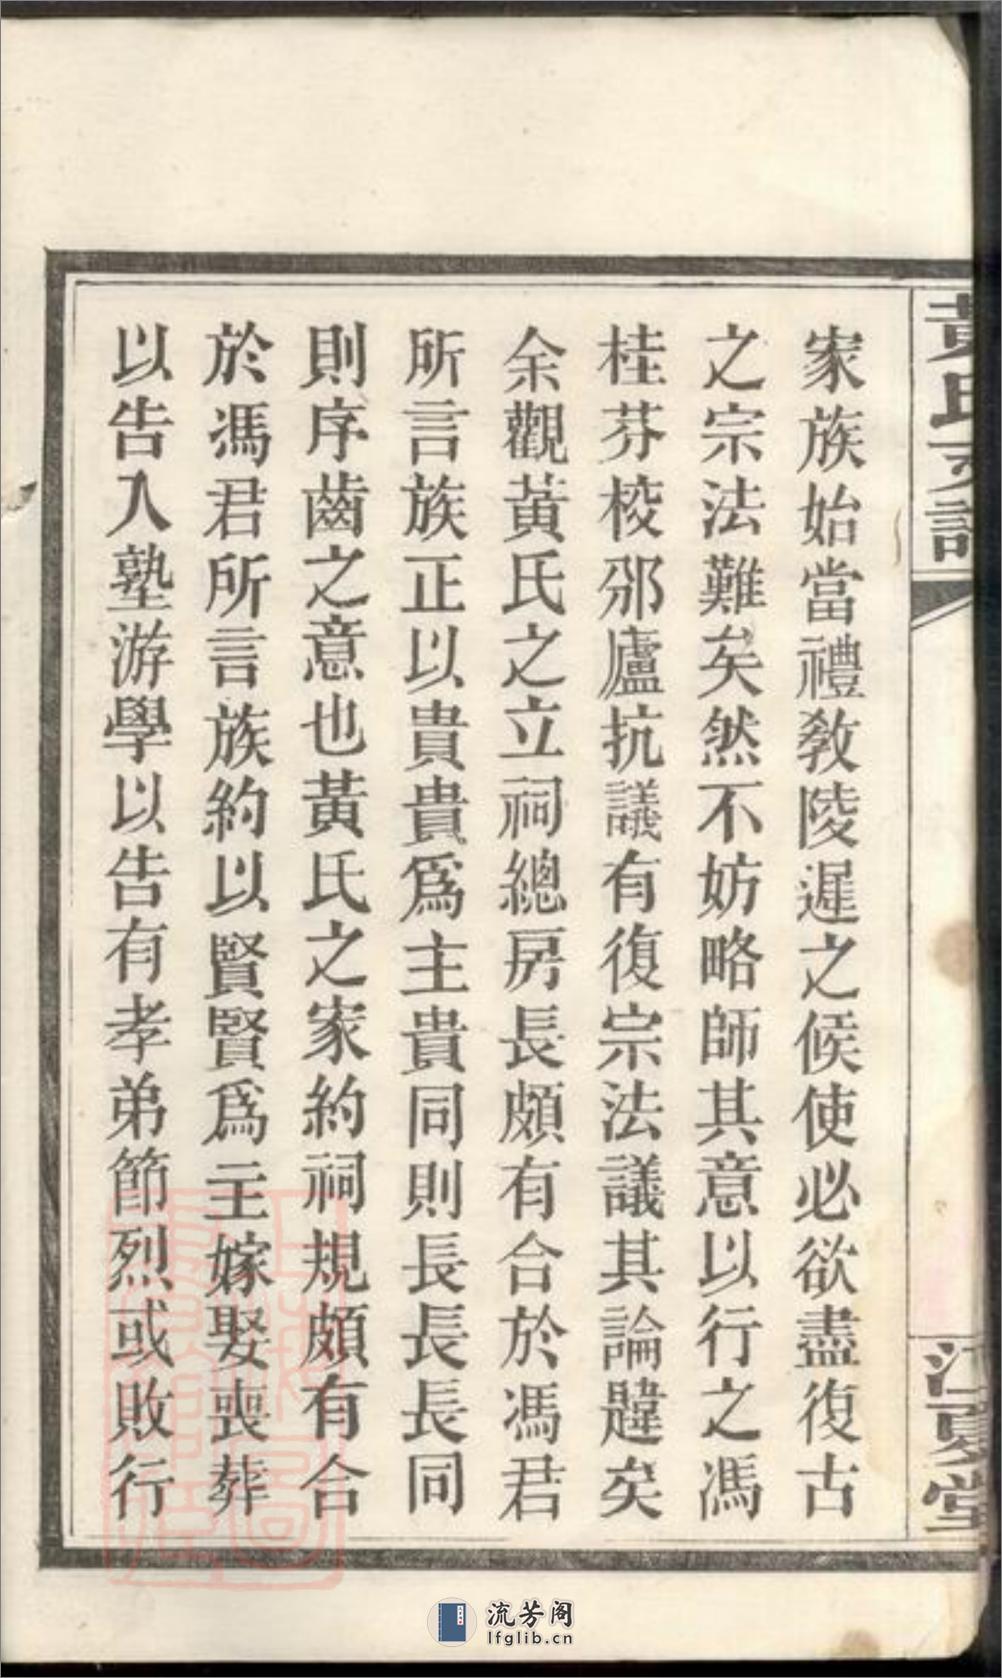 黃氏支譜
江夏堂
家族始當禮敎陵遲之候使必欲盡復古
之宗法難矣然不妨略師其意以行之馮
桂芬校邠廬抗議有復宗法議其論韙矣
余觀黃氏之立祠總房長頗有合於馮君
所言族正以貴貴爲主貴同則長長長同
則序齒之意也黃氏之家約祠規頗有合
於馮君所言族約以賢賢爲主嫁娶喪葬
以告入塾游學以告有孝弟節烈或敗行
流芳阁
lfglib.cn